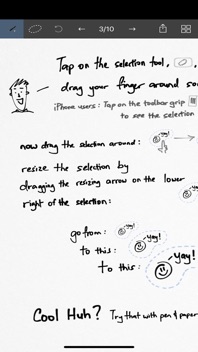 3/10
Tap on the selection tool,
drag your finger around so
iPhone users: Tap on the toolbar grip
to see the selection
now drag the selection around:
yay!
resize the selection by
dragging the resizing arrow on the lower
right of the selection:
go from: yay!
to this: yay!
to this: yay!
Cool Huh? Try that with pen & paper